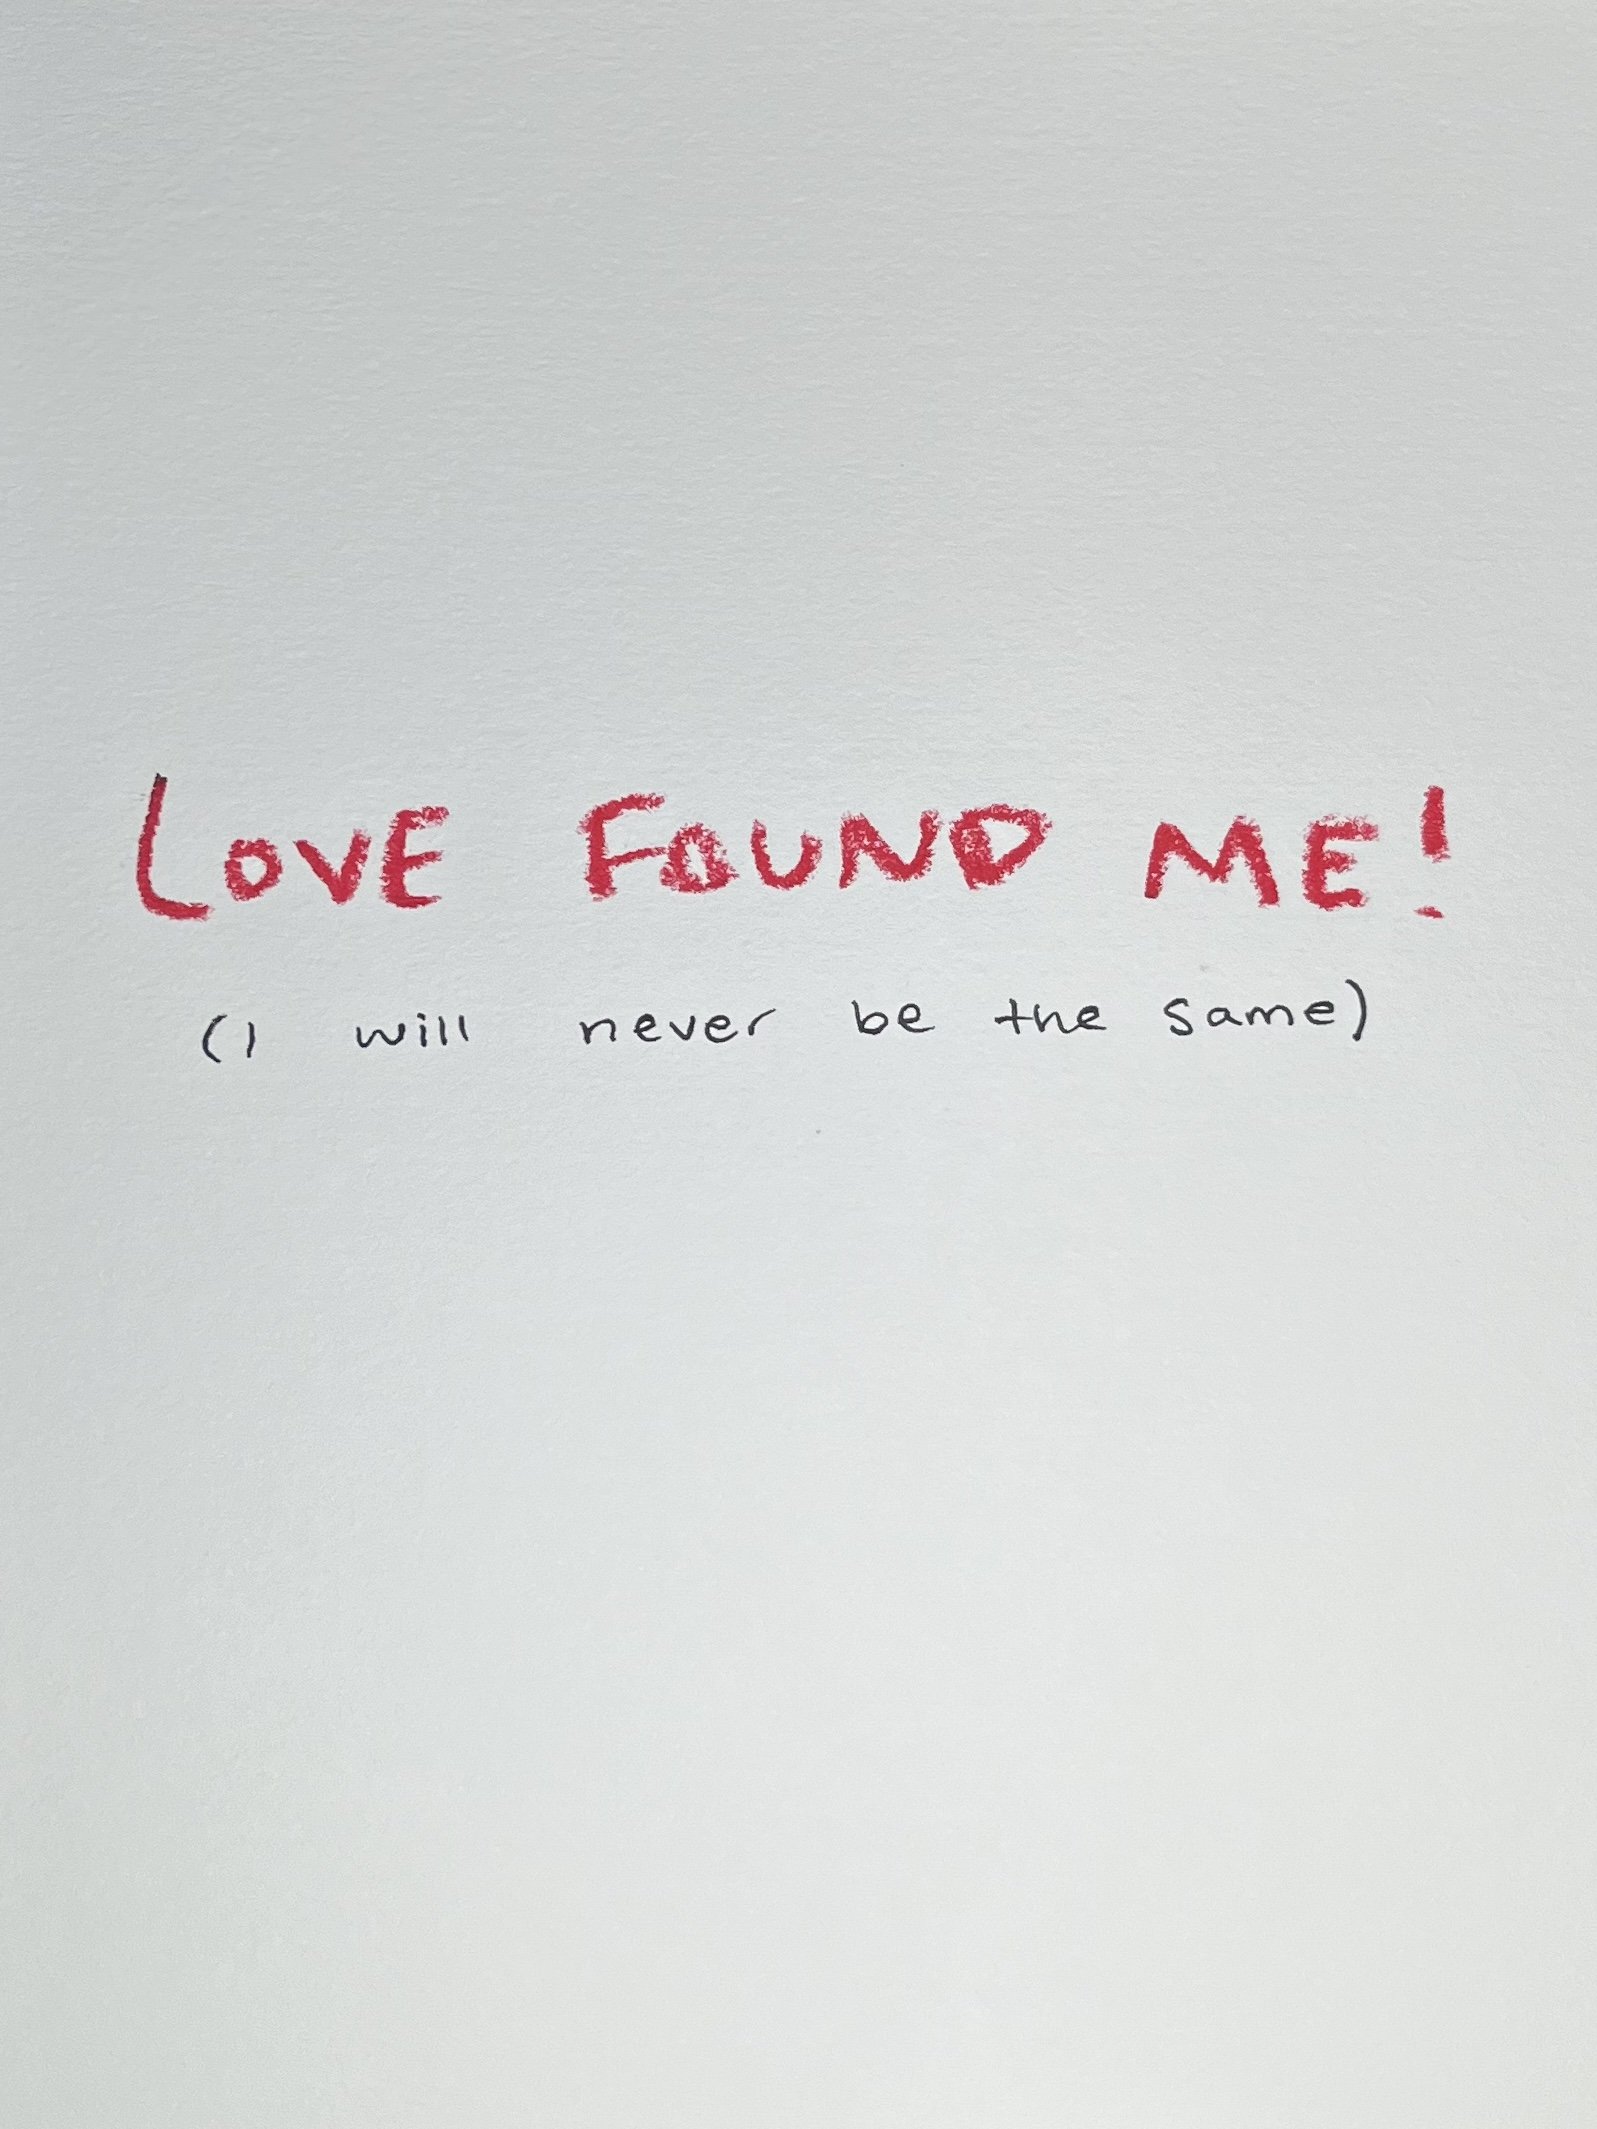 LOVE FOUND ME!
(I will never be the same)